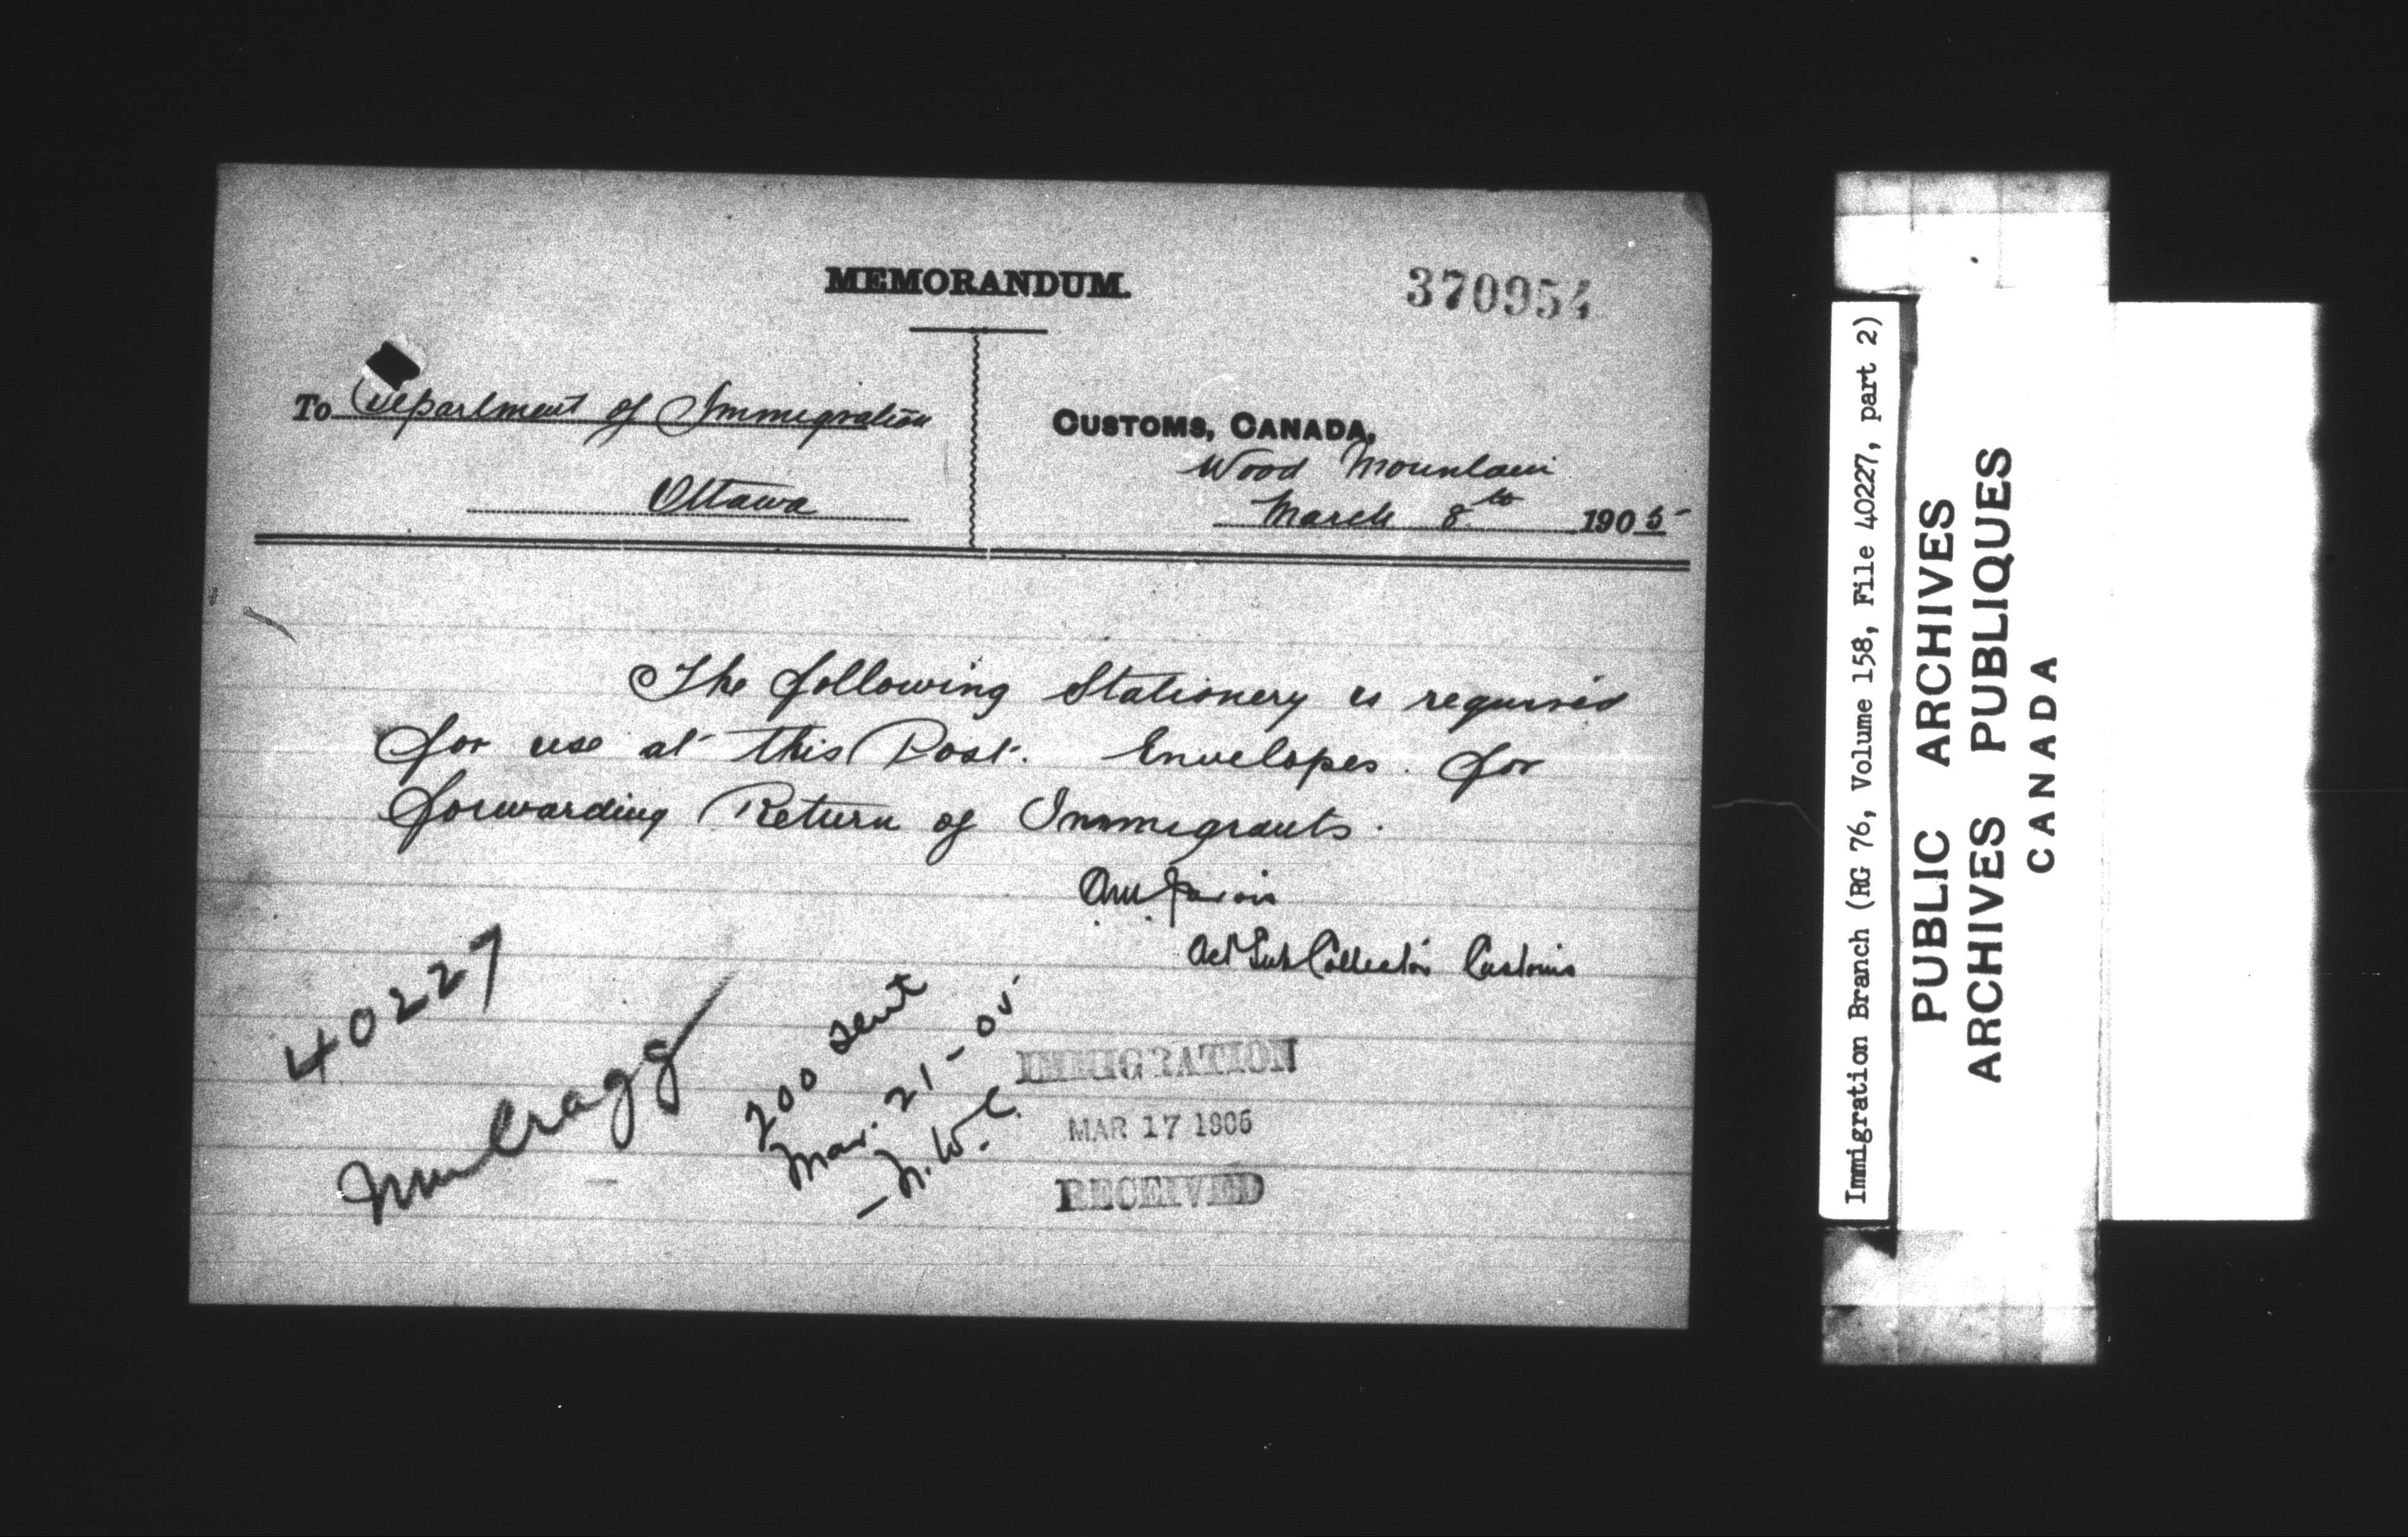 MEMORANDUM.
370954
To Department of Immigration
Ottawa
CUSTOMS, CANADA,
Wood Mountain
March 8th 1905
The following Stationery is required
for use at this Post. Envelopes. for
forwarding Return of Immigrants.
Jarvis
Act Sub Collector Customs
40227
Cragg
200 sent
Mar. 21-05
IMMIGRATION
MAR 17 1905
RECEIVED
Immigration Branch (RG 76, Volume 158, File 40227, part 2)
PUBLIC ARCHIVES
ARCHIVES PUBLIQUES
CANADA